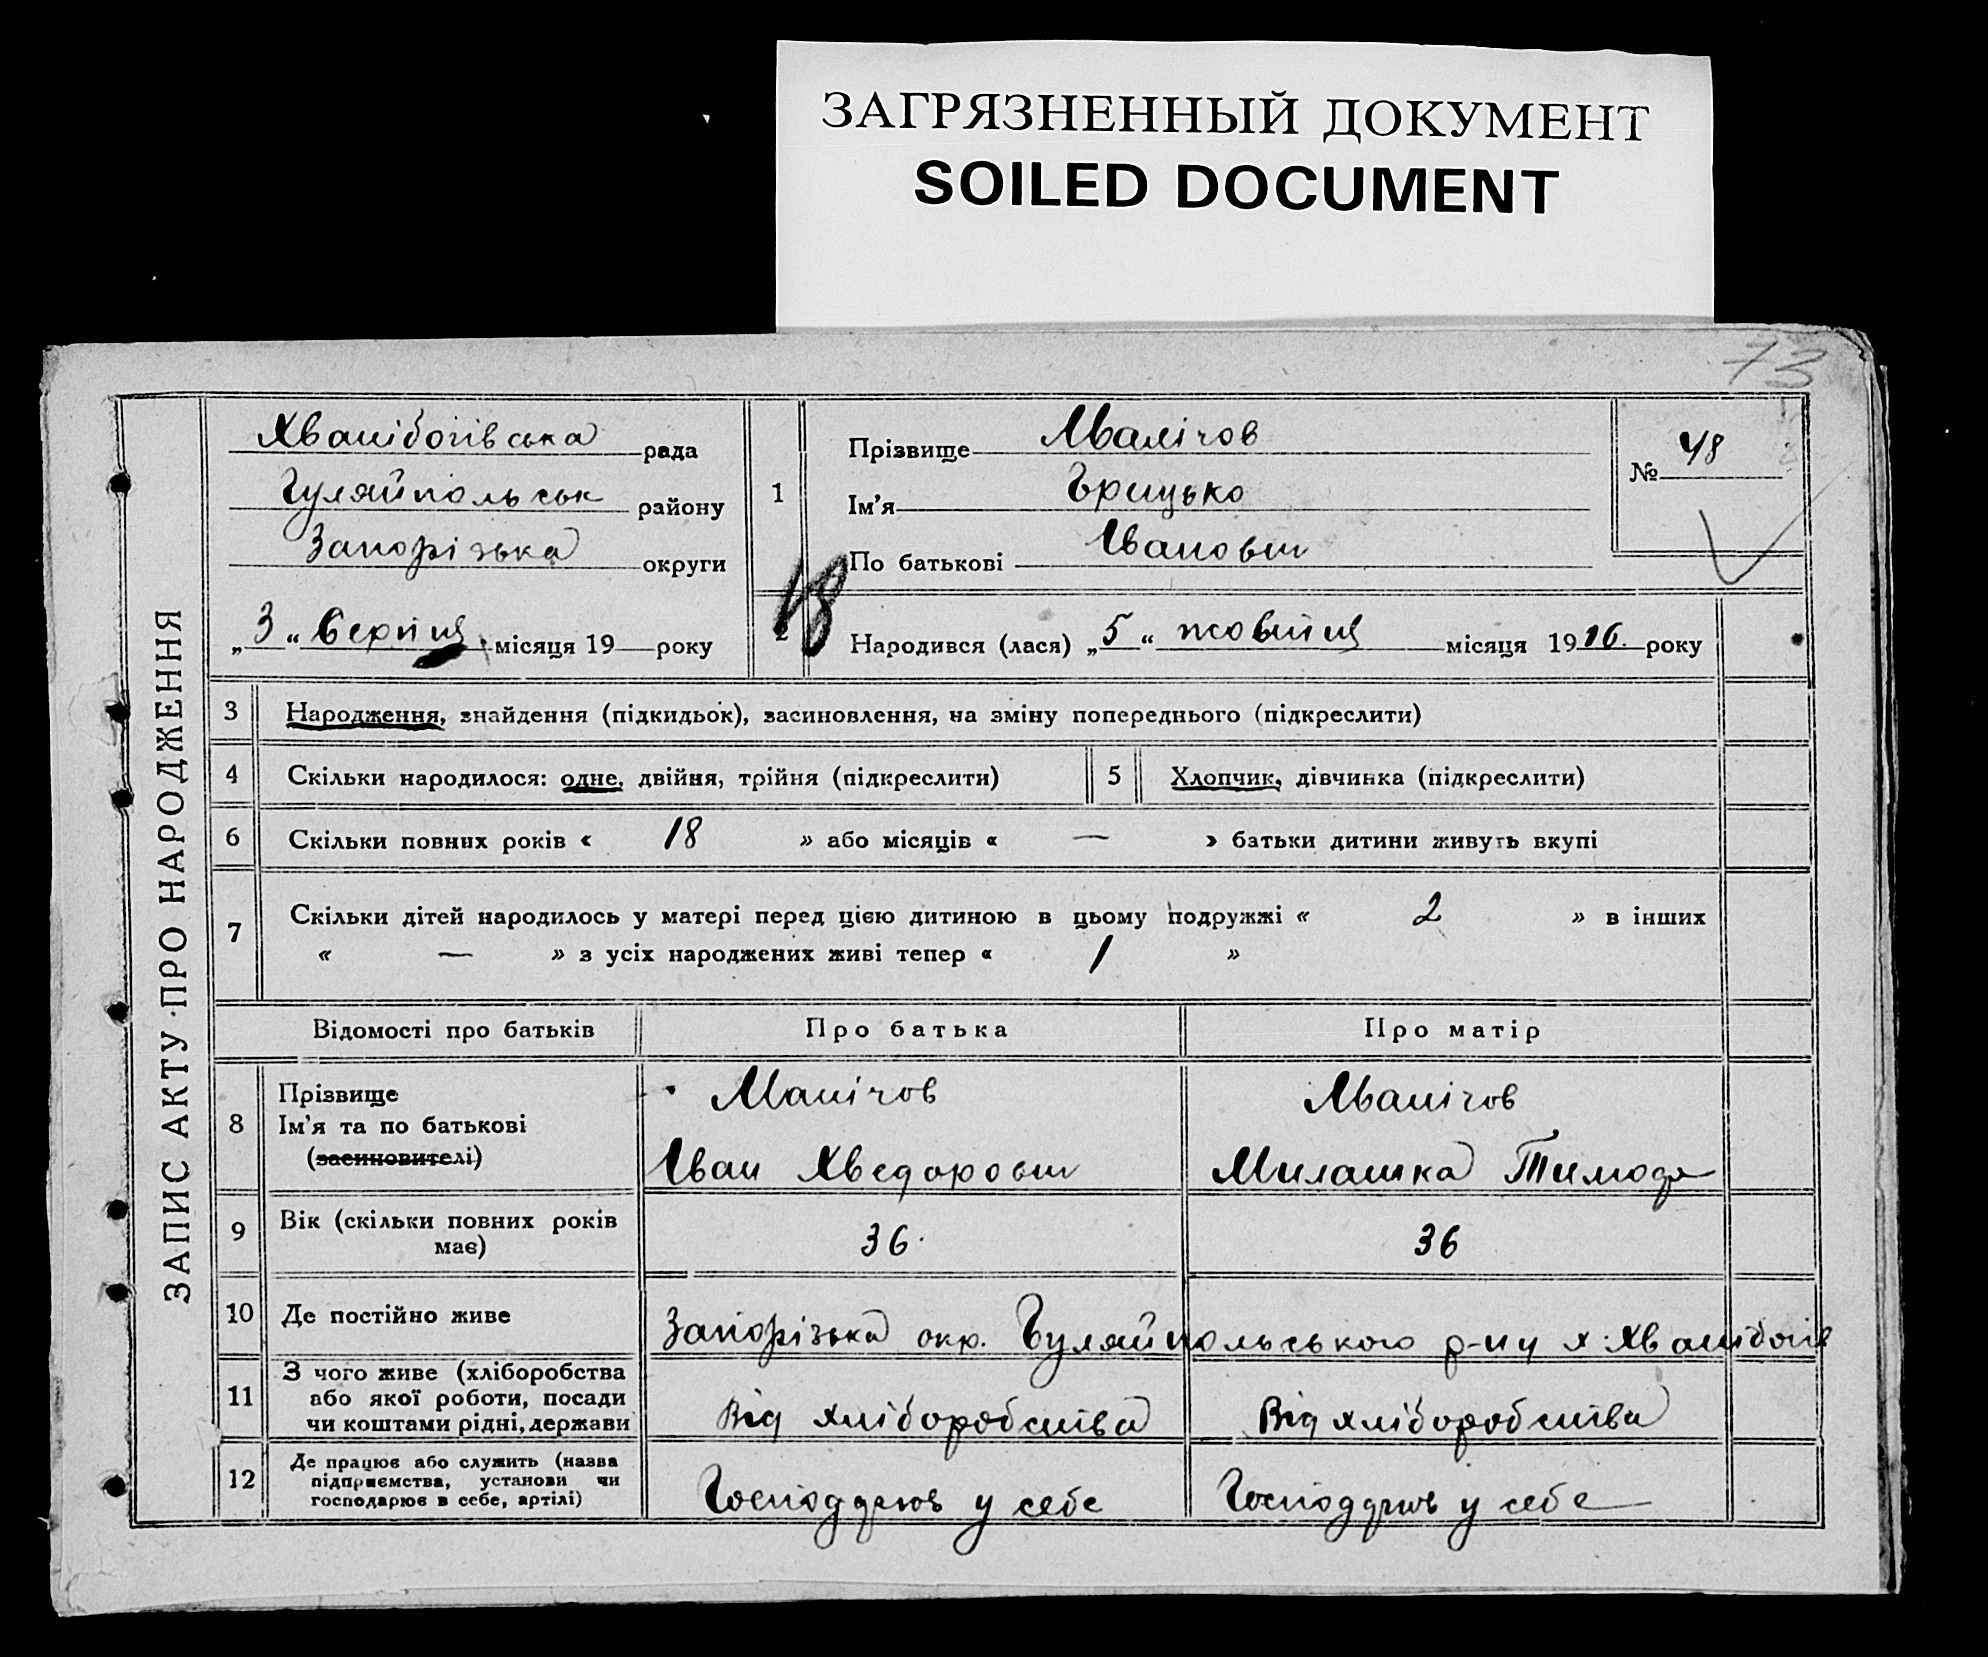 ЗАГРЯЗНЕННЫЙ ДОКУМЕНТ
SOILED DOCUMENT
73
ЗАПИС АКТУ ПРО НАРОДЖЕННЯ
рада
Гуляйпольськ району
Запорізька округи
„3“ Серпня місяця 19 року
1
Прізвище
Ім'я Грицько
По батькові Іванович
№ 48
48
2
Народився (лася) „5“ жовтня місяця 1916. року
3 Народження, знайдення (підкидьок), засиновлення, на зміну попереднього (підкреслити)
4 Скільки народилося: одне, двійня, трійня (підкреслити)
5 Хлопчик, дівчинка (підкреслити)
6 Скільки повних років « 18 » або місяців « — » батьки дитини живуть вкупі
7 Скільки дітей народилось у матері перед цією дитиною в цьому подружжі « 2 » в інших
« — » з усіх народжених живі тепер « 1 »
Відомості про батьків Про батька Про матір
8 Прізвище
Ім'я та по батькові
(засиновителі)
Іван Хведорович
Милашка Тимоф
9 Вік (скільки повних років має) 36. 36
10 Де постійно живе Запорізька окр. Гуляйпольського р-ну х.
11 З чого живе (хліборобства
або якої роботи, посади
чи коштами рідні, держави
Від хліборобства Від хліборобства
12 Де працює або служить (назва
підприємства, установи чи
господарює в себе, артілі)
Господарює у себе Господарює у себе